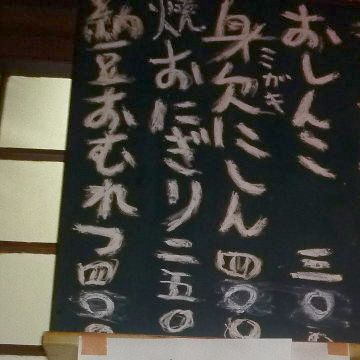 おしんこ 三〇
身欠にしん 四〇〇
ミガキ
焼おにぎり 二五〇
納豆おむれつ 四〇〇